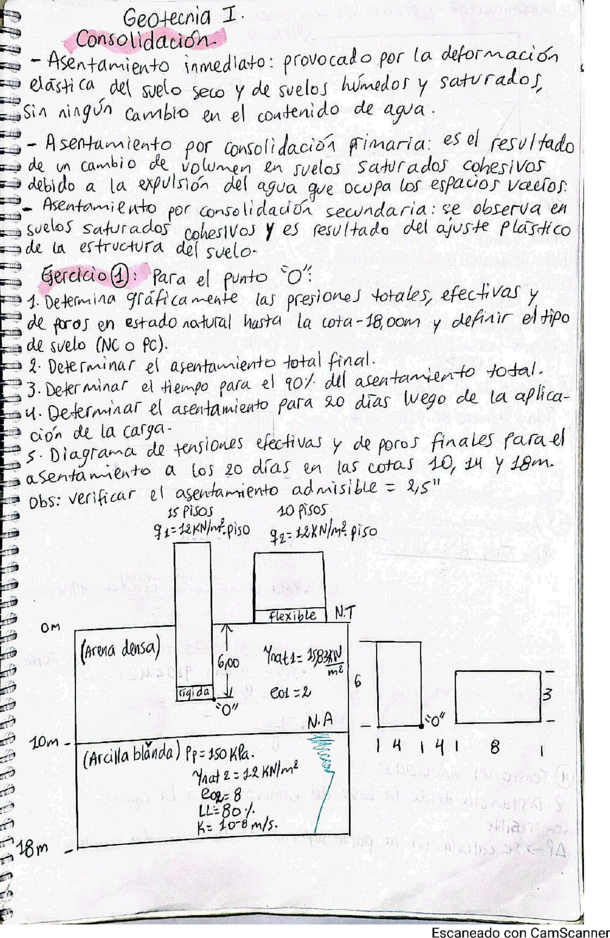 Geotecnia I.
Consolidación.
- Asentamiento inmediato: provocado por la deformación
elástica del suelo seco y de suelos húmedos y saturados,
sin ningún cambio en el contenido de agua.
- Asentamiento por consolidación primaria: es el resultado
de un cambio de volumen en suelos saturados cohesivos
debido a la expulsión del agua que ocupa los espacios vacíos.
- Asentamiento por consolidación secundaria: se observa en
suelos saturados cohesivos y es resultado del ajuste plástico
de la estructura del suelo.
Ejercicio ①: Para el punto "O":
1. Determina gráficamente las presiones totales, efectivas y
de poros en estado natural hasta la cota -18,00m y definir el tipo
de suelo (NC o PC).
2. Determinar el asentamiento total final.
3. Determinar el tiempo para el 90% del asentamiento total.
4. Determinar el asentamiento para 20 días luego de la aplica-
ción de la carga.
5. Diagrama de tensiones efectivas y de poros finales para el
asentamiento a los 20 días en las cotas 10, 14 y 18m.
Obs: verificar el asentamiento admisible = 2,5"
15 PISOS
q1=12KN/m².piso
10 pisos
q2=12KN/m².piso
flexible
N.T
0m
(Arena densa)
6,00
γnat1= 15,83 KN/m²
e01=2
rígida
"O"
N.A
10m
(Arcilla blanda) Pp=150 KPa.
γnat2=12 KN/m²
e02=8
LL=80%
K=10-8 m/s.
18m
6
3
"O"
1 4 1 4 1 8 1
Escaneado con CamScanner